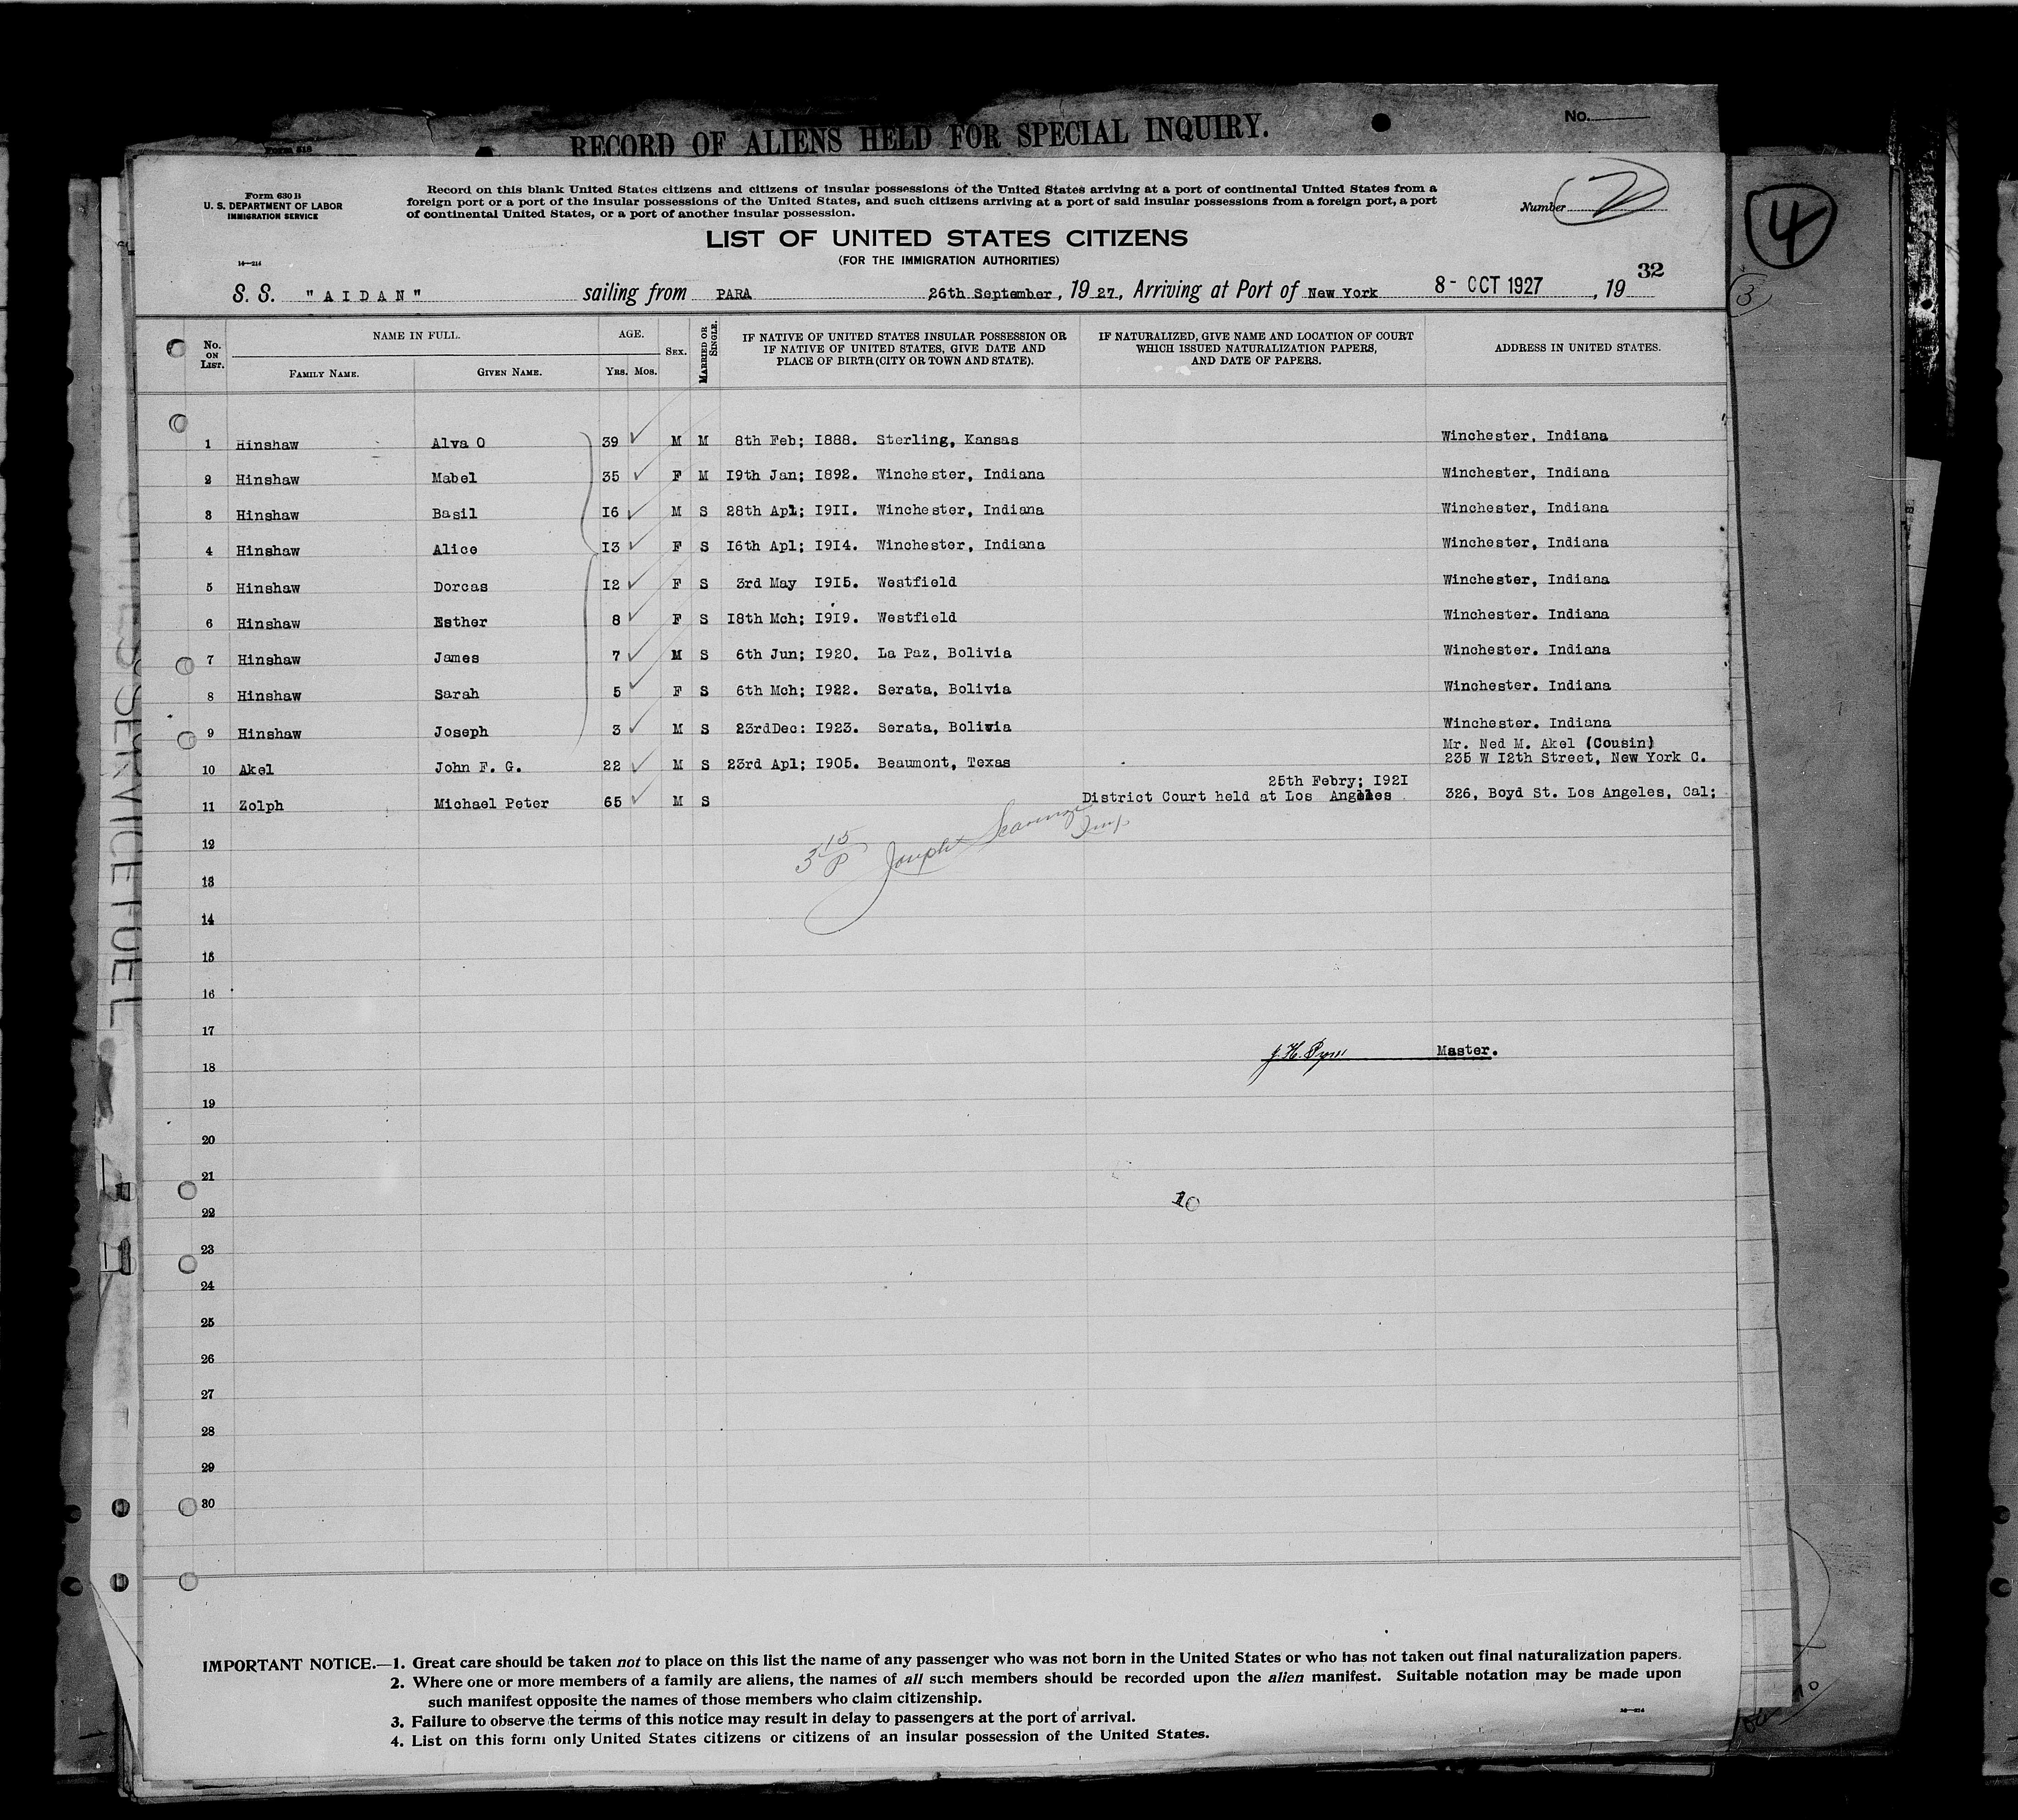 RECORD OF ALIENS HELD FOR SPECIAL INQUIRY.
No.
Form 518
Form 630 B
U. S. DEPARTMENT OF LABOR
IMMIGRATION SERVICE
Record on this blank United States citizens and citizens of insular possessions of the United States arriving at a port of continental United States from a
foreign port or a port of the insular possessions of the United States, and such citizens arriving at a port of said insular possessions from a foreign port, a port
of continental United States, or a port of another insular possession.
Number 2
4
LIST OF UNITED STATES CITIZENS
(FOR THE IMMIGRATION AUTHORITIES)
14—214
32
3
S. S. "AIDAN" sailing from PARA 26th September, 1927, Arriving at Port of New York 8- OCT 1927, 19
No. ON LIST. NAME IN FULL. FAMILY NAME. GIVEN NAME. AGE. YRS. MOS. SEX. MARRIED OR SINGLE. IF NATIVE OF UNITED STATES INSULAR POSSESSION OR IF NATIVE OF UNITED STATES, GIVE DATE AND PLACE OF BIRTH (CITY OR TOWN AND STATE). IF NATURALIZED, GIVE NAME AND LOCATION OF COURT WHICH ISSUED NATURALIZATION PAPERS, AND DATE OF PAPERS. ADDRESS IN UNITED STATES.
1 Hinshaw Alva O 39 ✓ M M 8th Feb; I888. Sterling, Kansas Winchester, Indiana
2 Hinshaw Mabel 35 ✓ F M I9th Jan; I892. Winchester, Indiana Winchester, Indiana
3 Hinshaw Basil I6 ✓ M S 28th Apl; I9II. Winchester, Indiana Winchester, Indiana
4 Hinshaw Alice I3 ✓ F S I6th Apl; I9I4. Winchester, Indiana Winchester, Indiana
5 Hinshaw Dorcas I2 ✓ F S 3rd May I9I5. Westfield Winchester, Indiana
6 Hinshaw Esther 8 ✓ F S I8th Mch; I9I9. Westfield Winchester. Indiana
7 Hinshaw James 7 ✓ M S 6th Jun; I920. La Paz, Bolivia Winchester. Indiana
8 Hinshaw Sarah 5 ✓ F S 6th Mch; I922. Serata, Bolivia Winchester. Indiana
9 Hinshaw Joseph 3 ✓ M S 23rdDec: I923. Serata, Bolivia Winchester. Indiana
Mr. Ned M. Akel (Cousin)
10 Akel John F. G. 22 ✓ M S 23rd Apl; I905. Beaumont, Texas 235 W I2th Street, New York C.
25th Febry; I92I
11 Zolph Michael Peter 65 ✓ M S District Court held at Los Angeles 326, Boyd St. Los Angeles, Cal;
3 15 P Joseph
12
13
14
15
16
17
Master.
18
19
20
21
10
22
23
24
25
26
27
28
29
30
IMPORTANT NOTICE.—1. Great care should be taken not to place on this list the name of any passenger who was not born in the United States or who has not taken out final naturalization papers.
2. Where one or more members of a family are aliens, the names of all such members should be recorded upon the alien manifest. Suitable notation may be made upon
such manifest opposite the names of those members who claim citizenship.
3. Failure to observe the terms of this notice may result in delay to passengers at the port of arrival.
4. List on this form only United States citizens or citizens of an insular possession of the United States.